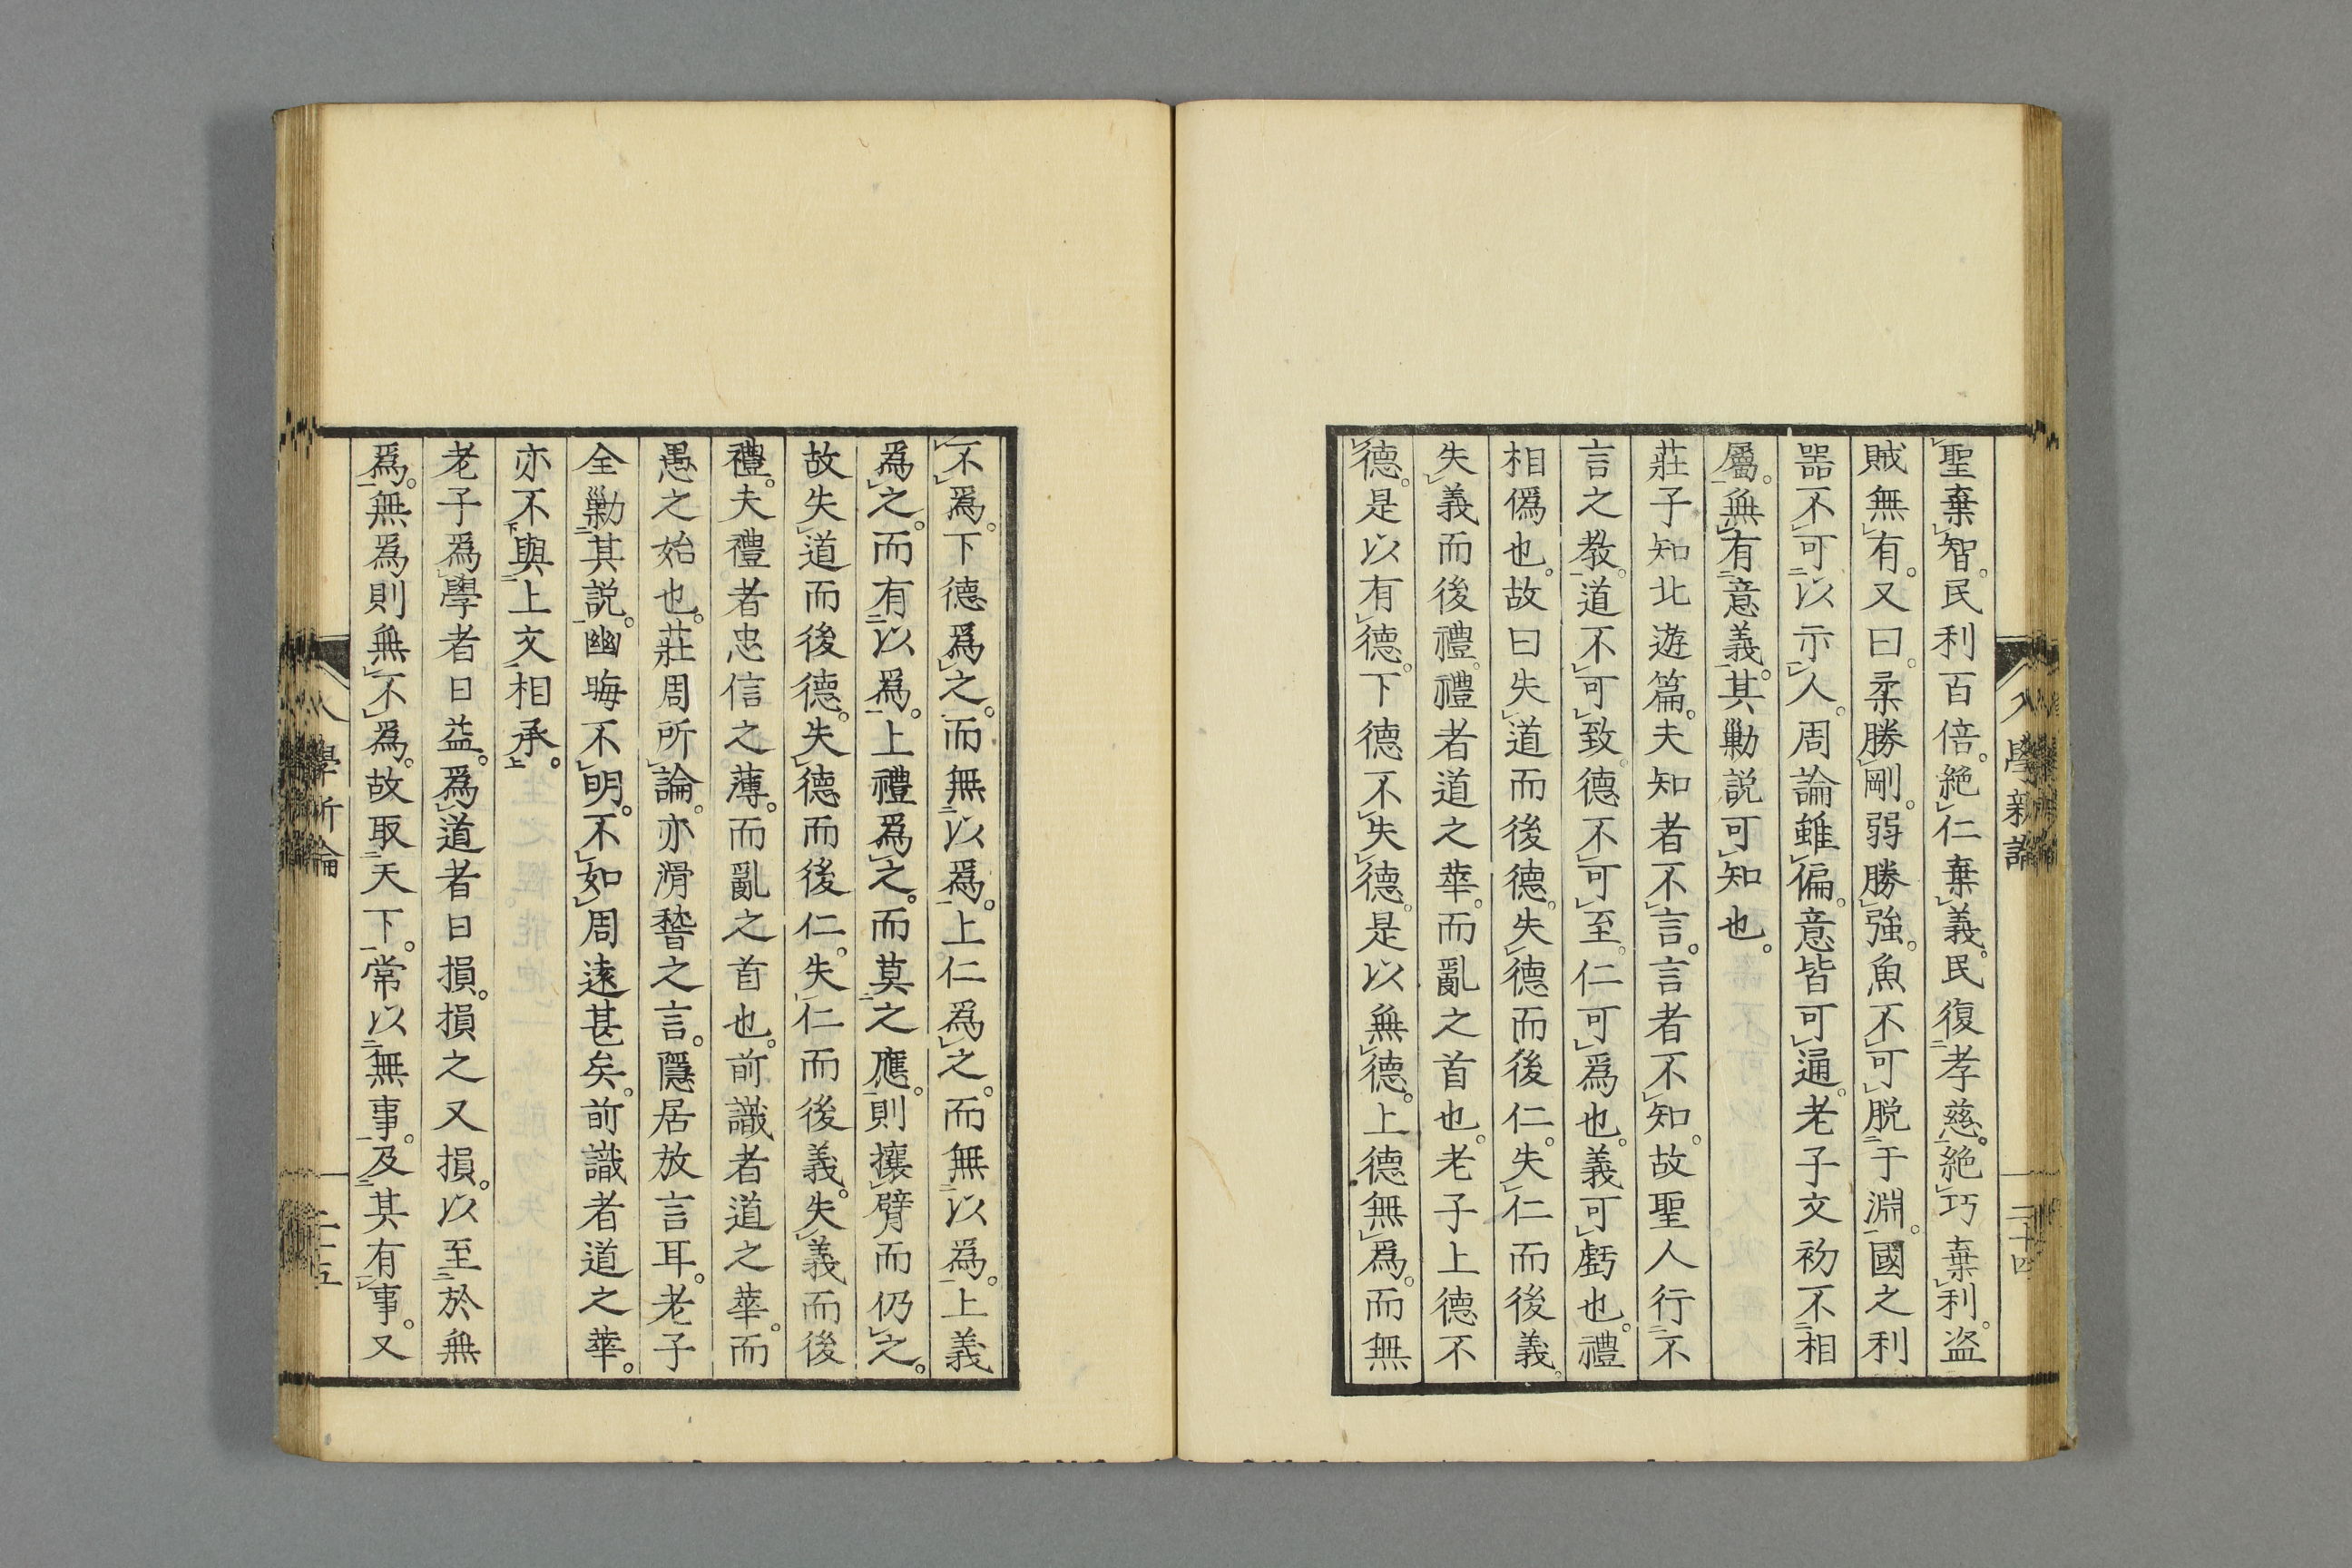 聖棄智。民利百倍。絶仁棄義。民復孝慈。絶巧棄利。盗
賊無有。又曰。柔勝剛。弱勝強。魚不可脱于淵。國之利
器不可以示人。周論雖偏。意皆可通。老子文初不相
屬。無有意義。其勦説可知也。
莊子知北遊篇。夫知者不言。言者不知。故聖人行不
言之教。道不可致。德不可至。仁可爲也。義可虧也。禮
相僞也。故曰失道而後德。失德而後仁。失仁而後義。
失義而後禮。禮者道之華。而亂之首也。老子上德不
德。是以有德。下德不失德。是以無德。上德無爲。而無
不爲。下德爲之。而無以爲。上仁爲之。而無以爲。上義
爲之。而有以爲。上禮爲之。而莫之應。則攘臂而仍之。
故失道而後德。失德而後仁。失仁而後義。失義而後
禮。夫禮者忠信之薄。而亂之首也。前識者道之華。而
愚之始也。莊周所論。亦滑稽之言。隱居放言耳。老子
全勦其説。幽晦不明。不如周遠甚矣。前識者道之華。
亦不與上文相承。
老子爲學者日益。爲道者日損。損之又損。以至於無
爲。無爲則無不爲。故取天下。常以無事。及其有事。又
學新論
二十四